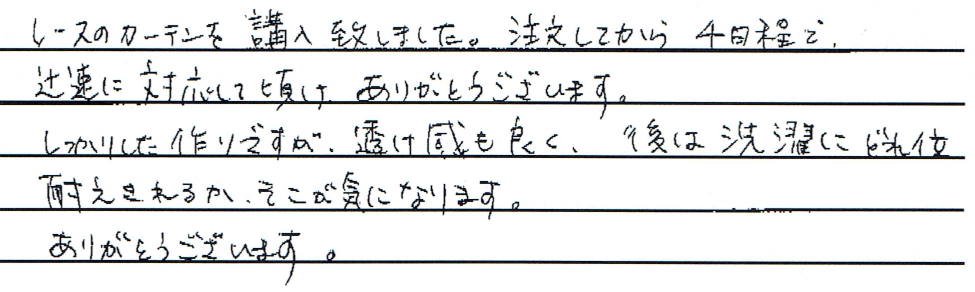 レースのカーテンを購入致しました。注文してから4日程で、
迅速に対応して頂け、ありがとうございます。
しっかりした作りですが、透け感も良く、後は洗濯にどれ位
耐えきれるか、そこが気になります。
ありがとうございます。